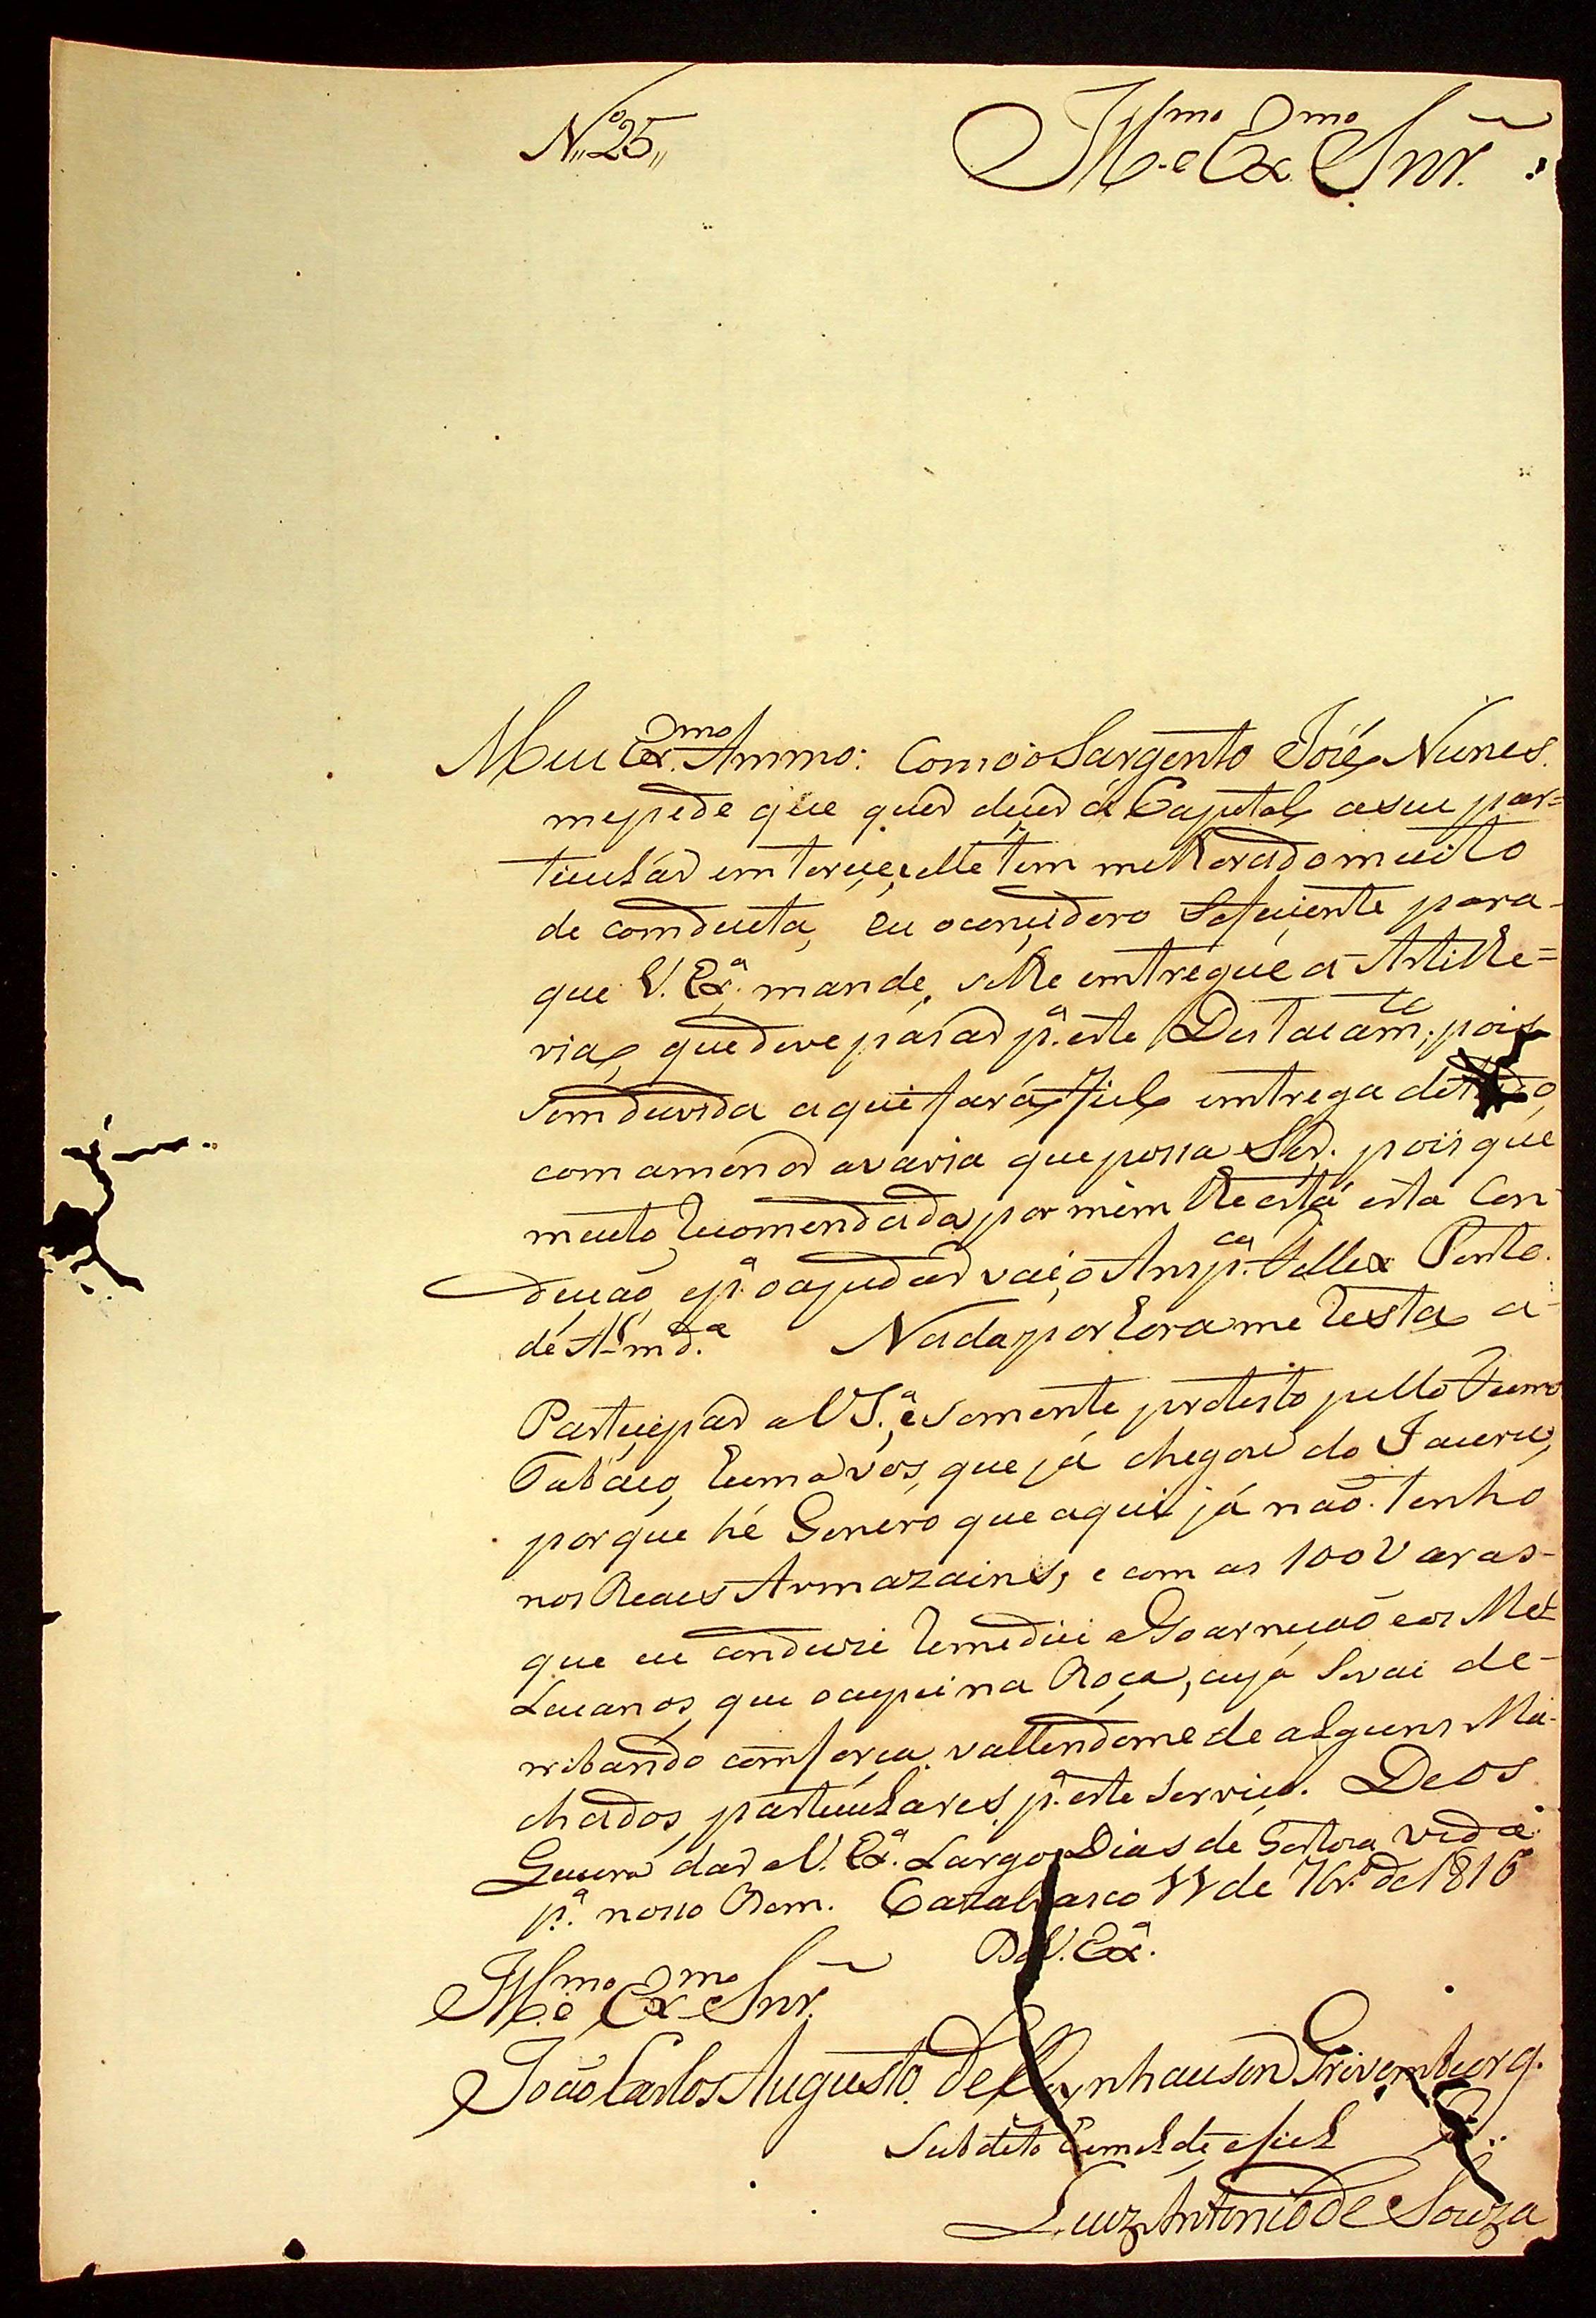 N.º 25
Ill.mo e Ex.mo Snr.
Meu Ex.mo Ammo: Como o Sargento José Nunes
me pede que quer dicer á Capital a seu par=
ticular emterece, elle tem melhorado muito
de comducta, eu o conçidero Sofuiente para
que V. Ex.ª mande, se lhe emtregue a Artilhe=
ria, que deve pasar p.ª este Destacam.te, pois
sem duvida aqui fará fiel emtrega de
com a menor avaria que possa Ser. pois que
muito Recomendada por mim lhe está esta Con
dução, e p.ª o ajudar vai, o Ansp.ca Felles Ponte.
de Alm.da Nada por hora me Resta a
Participar a V S.ª, e somente protesto pello Fumo
Tabaco, huma ves, que já chegou do Jauru,
porque hé Genero que aqui já não tenho
nos Reaes Armazains, e com as 100 Varas
que eu conduzi Remediei a Goarnição e os Me
Licianos, que ocupei na Roça, cuja Se vai de
rribando com força, vallendome de alguns Ma
chados, particulares, p.ª este Serviço. Deos
Queira dar a V. Ex.ª Largos Dias de vida
p.ª nosso Bem. Cazalvasco 11 de 7br.º de 1816
De V. Ex.ª
Ill.mo e Ex.mo Snr.
João Carlos Augusto de Oeynhauson Grivemburg.
Subdito humilde e fiel
Luiz Antonio de Souza